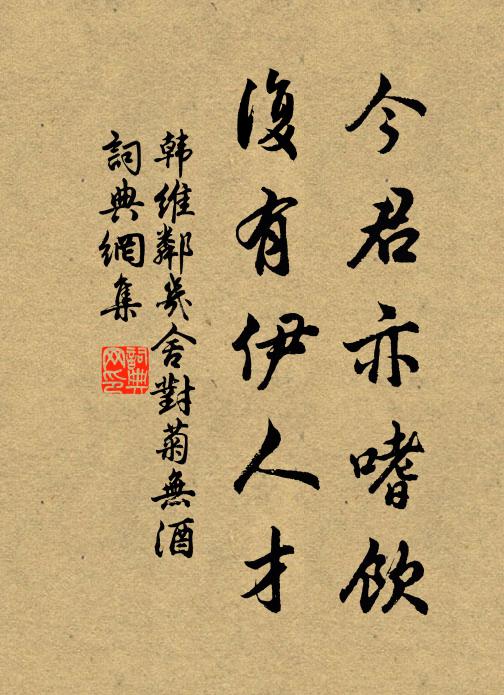 今君亦嗜飲
復有伊人才
韩維鄰幾舍對菊無酒
詞典網集
詞典
网印